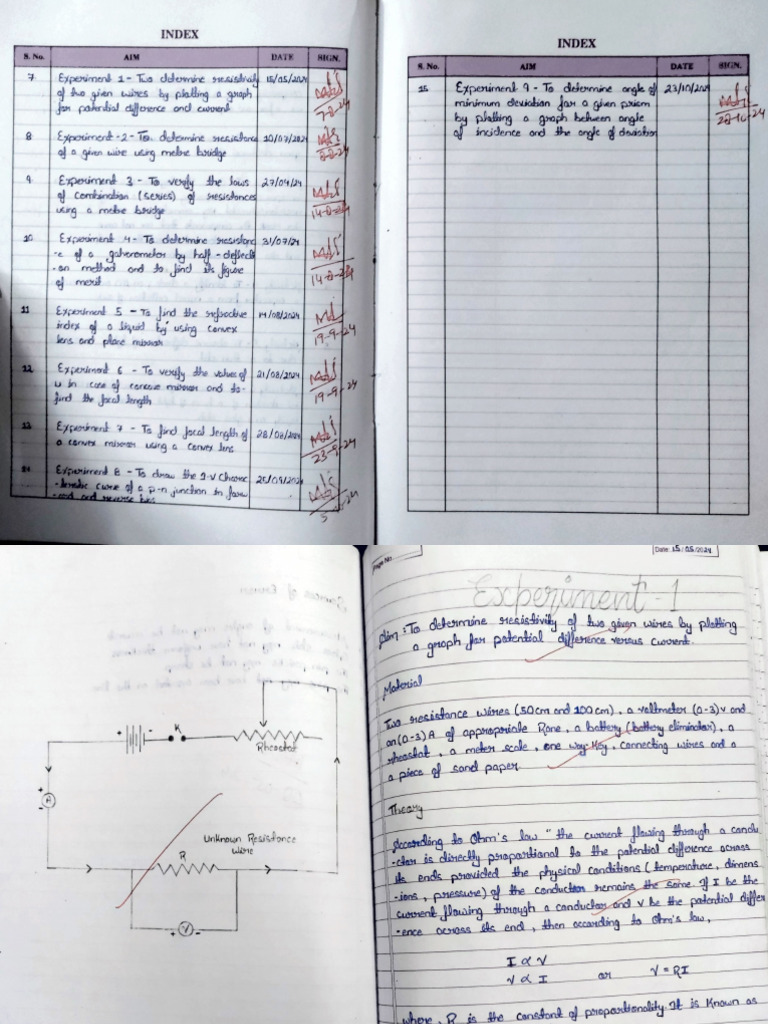 INDEX
S. No. AIM DATE SIGN.
7 Experiment 1 - Two determine resistivity 15/05/2024
of two given wires by plotting a graph
for potential difference and current 7-8-24
8 Experiment-2 - To determine resistance 10/07/2024
of a given wire using metre bridge 8-8-24
9. Experiment 3 - To verify the laws 27/04/24
of combination (series) of resistances
using a metre bridge 14-8-24
10 Experiment 4 - To determine resistanc 31/07/24
-e of a galvenometer by half-deflecti
-on method and to find its figure 14-8-24
of merit
11 Experiment 5 - To find the refractive 14/08/2024
index of a liquid by using convex
lens and plane mirror 19-9-24
12 Experiment 6 - To verify the values of 21/08/2024
u in case of concave mirror and to
find the focal length 19-9-24
13 Experiment 7 - To find focal length of 28/08/2024
a convex mirror using a convex lens 23-9-24
14 Experiment 8 - To draw the I-V Charac
-teristic curve of a p-n junction in forw
-ard and reverse bias
INDEX
S. No. AIM DATE SIGN.
15 Experiment 9 - To determine angle of 23/10/2024
minimum deviation for a given prism
by plotting a graph between angle
of incidence and the angle of deviation 28-10-24
+ - K
Rheostat
+ A -
Unknown Resistance
Wire
R
+ V -
Page No.
Date: 15/05/2024
Experiment-1
Aim: To determine resistivity of two given wires by plotting
a graph for potential difference versus current.
Material
Two resistance wires (50cm and 100cm), a voltmeter (0-3)v and
an (0-3)A of appropriate Rane, a battery (battery eliminator), a
rheostat, a meter scale, one way-Key, connecting wires and a
a piece of sand paper.
Theory
According to Ohm's law " the current flowing through a condu
-ctor is directly proportional to the potential difference across
its ends provided the physical conditions (temperature, dimens
-ions, pressure) of the conductor remains the same. If I be the
current flowing through a conductor and V be the potential differ
-ence across its end, then according to Ohm's law,
I ∝ V
V ∝ I or V = RI
where, R is the constant of proportionality. It is Known as